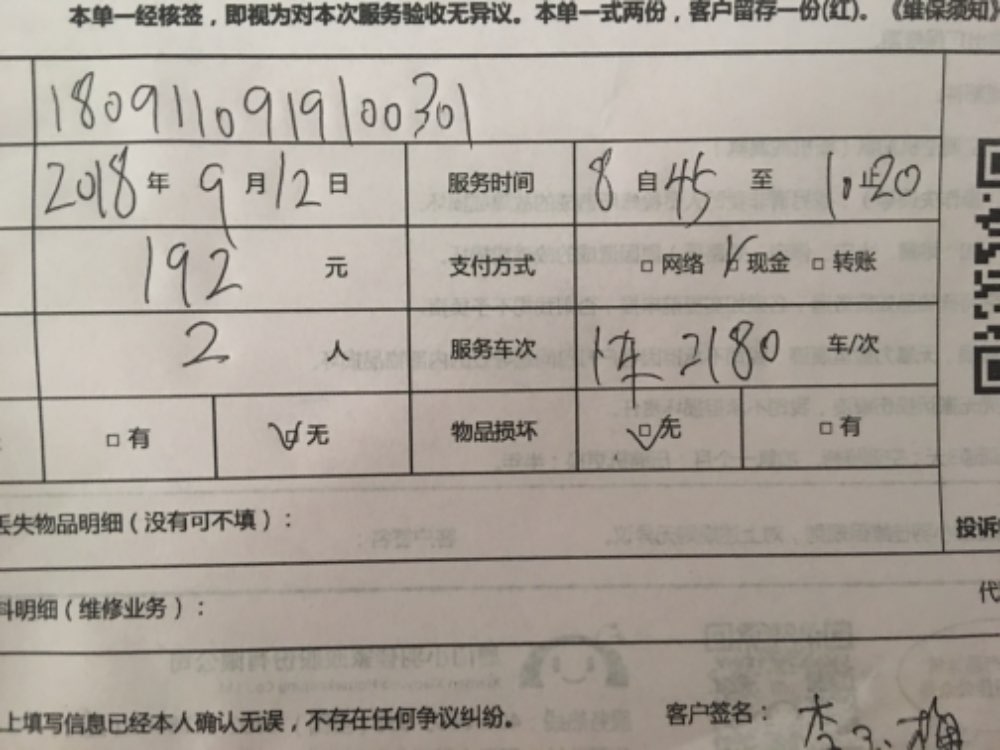 本单一经核签，即视为对本次服务验收无异议。本单一式两份，客户留存一份(红)。《维保须知》
1809110919100301
2018年 9月12日 服务时间 8自45至1。20
192元 支付方式 □网络 □现金 □转账
2人 服务车次 1车 2180 车/次
□有 □无 物品损坏 □无 □有
丢失物品明细（没有可不填）：
投诉
料明细（维修业务）：
代
上填写信息已经本人确认无误，不存在任何争议纠纷。
客户签名：